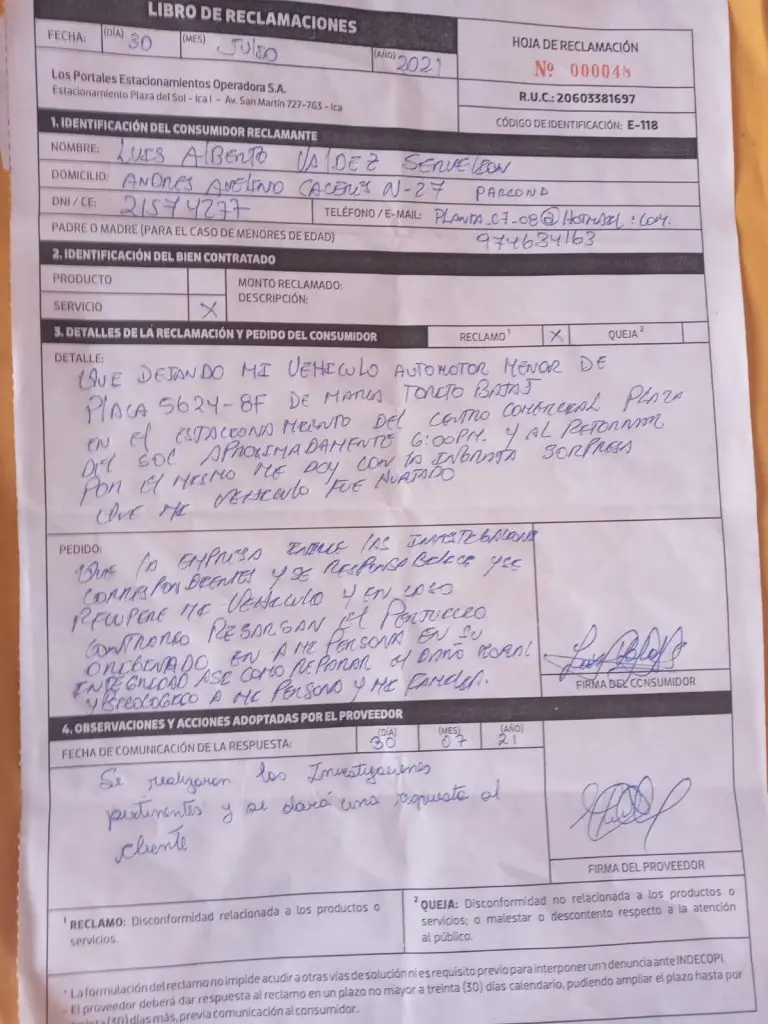 LIBRO DE RECLAMACIONES
FECHA: (DÍA) 30 (MES) JULIO (AÑO) 2021
HOJA DE RECLAMACIÓN
Nº 000048
Los Portales Estacionamientos Operadora S.A.
Estacionamiento Plaza del Sol - Ica I - Av. San Martín 727-763 - Ica
R.U.C.: 20603381697
CÓDIGO DE IDENTIFICACIÓN: E-118
1. IDENTIFICACIÓN DEL CONSUMIDOR RECLAMANTE
NOMBRE: LUIS ALBERTO VALDEZ
DOMICILIO: ANDRES AVELINO CACERES N-27 PARCONA
DNI / CE: 21574277 TELÉFONO / E-MAIL: PLANTA_07_08@HOTMAIL.COM.
PADRE O MADRE (PARA EL CASO DE MENORES DE EDAD) 974634163
2. IDENTIFICACIÓN DEL BIEN CONTRATADO
PRODUCTO MONTO RECLAMADO:
SERVICIO X DESCRIPCIÓN:
3. DETALLES DE LA RECLAMACIÓN Y PEDIDO DEL CONSUMIDOR RECLAMO¹ X QUEJA²
DETALLE:
QUE DEJANDO MI VEHICULO AUTOMOTOR MENOR DE
PLACA 5624-8F DE MARCA TORITO BAJAJ
EN EL ESTACIONAMIENTO DEL CENTRO COMERCIAL PLAZA
DEL SOL APROXIMADAMENTE 6:00PM. Y AL RETORNAR
POR EL MISMO ME DOY CON LA INGRATA SORPRESA
QUE MI VEHICULO FUE HURTADO
PEDIDO:
QUE LA EMPRESA LAS
CORRESPONDIENTES Y SE RESPONSABILICE Y SE
RECUPERE MI VEHICULO Y EN CASO
CONTRARIO EL PERJUICIO
EN A MI PERSONA EN SU
INTEGRIDAD ASI COMO REPARAR EL DAÑO MORAL
Y A MI PERSONA Y MI FAMILIA.
FIRMA DEL CONSUMIDOR
4. OBSERVACIONES Y ACCIONES ADOPTADAS POR EL PROVEEDOR
FECHA DE COMUNICACIÓN DE LA RESPUESTA: (DÍA) 30 (MES) 07 (AÑO) 21
Se realizaran las Investigaciones
pertinentes y se dará una respuesta al
cliente
FIRMA DEL PROVEEDOR
¹ RECLAMO: Disconformidad relacionada a los productos o
servicios.
² QUEJA: Disconformidad no relacionada a los productos o
servicios; o malestar o descontento respecto a la atención
al público.
* La formulación del reclamo no impide acudir a otras vías de solución ni es requisito previo para interponer una denuncia ante INDECOPI.
- El proveedor deberá dar respuesta al reclamo en un plazo no mayor a treinta (30) días calendario, pudiendo ampliar el plazo hasta por
treinta (30) días más, previa comunicación al consumidor.